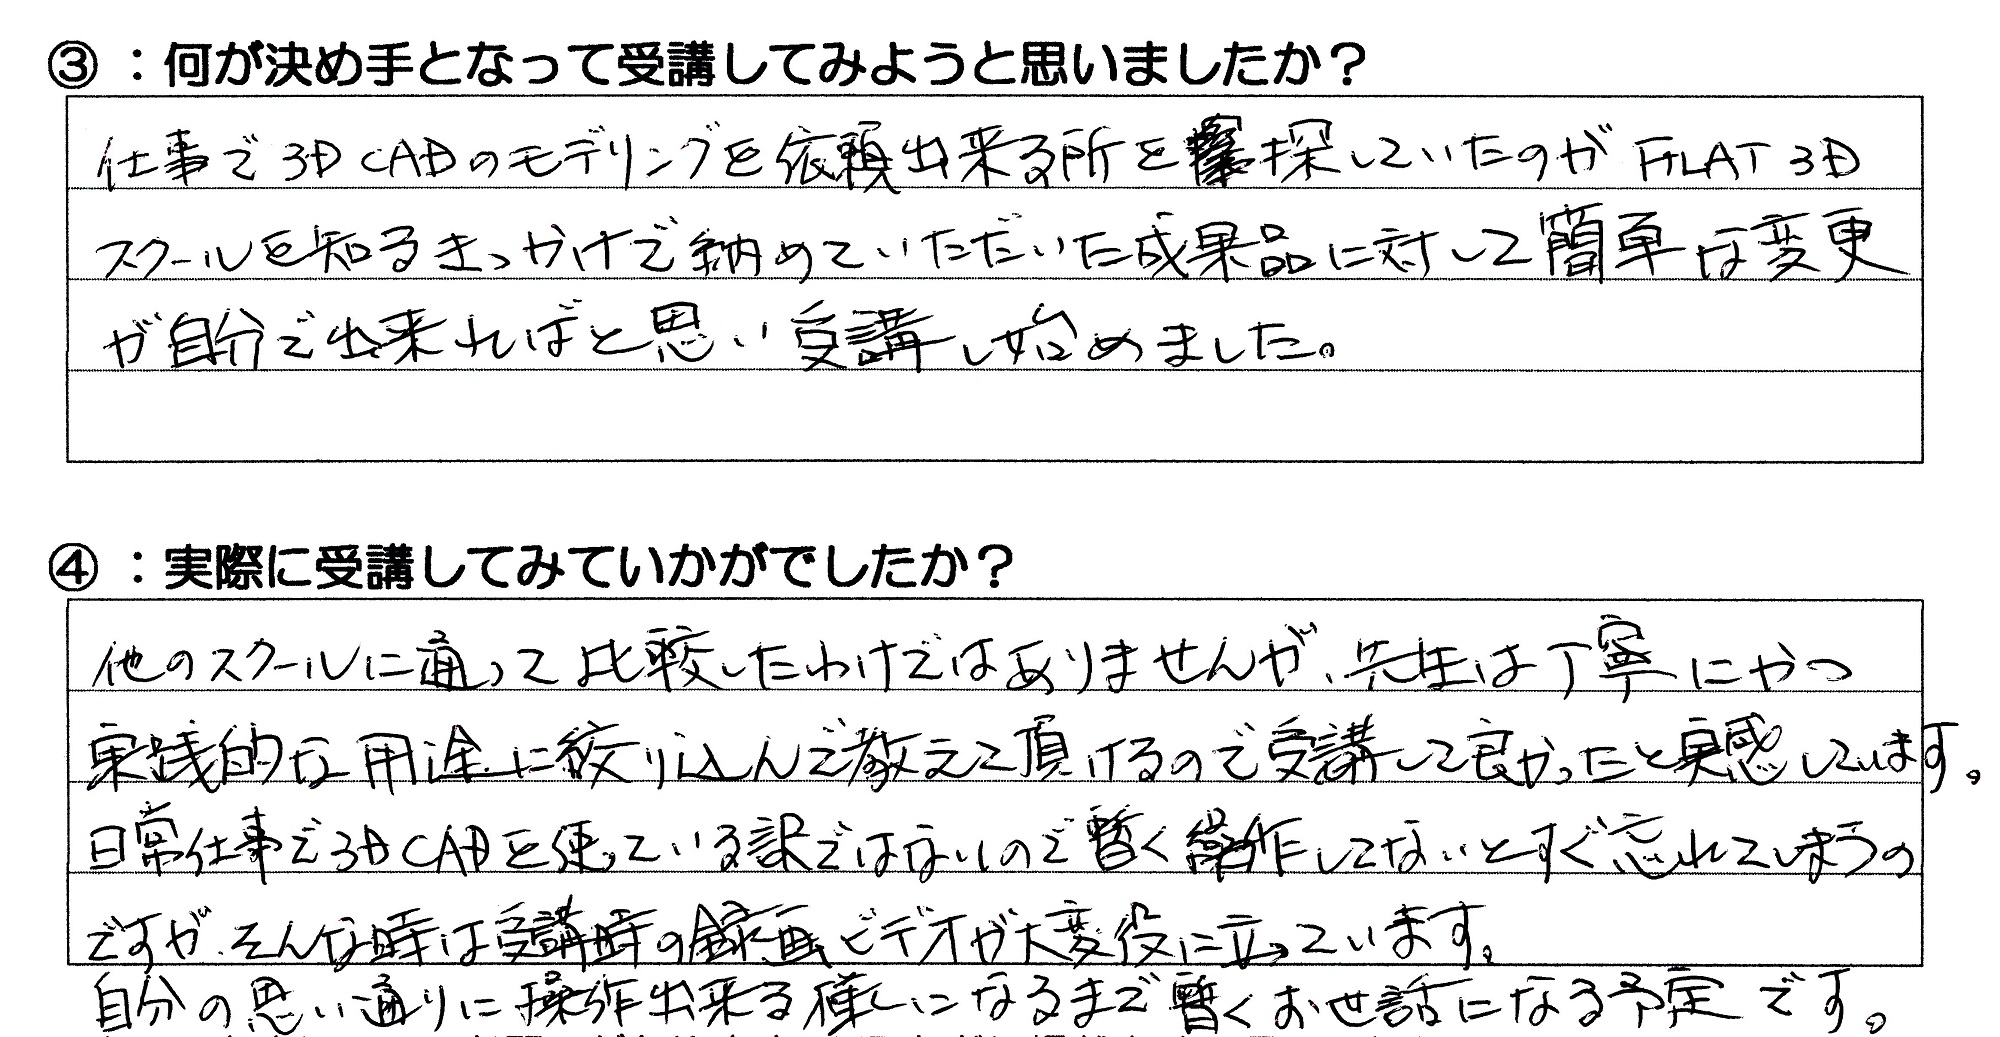 ③：何が決め手となって受講してみようと思いましたか？
仕事で3D CADのモデリングを依頼出来る所を探していたのが FLAT 3D
スクールを知るきっかけで納めていただいた成果品に対して簡単な変更
が自分で出来ればと思い受講し始めました。
④：実際に受講してみていかがでしたか？
他のスクールに通って比較したわけではありませんが、先生は丁寧にかつ
実践的な用途に絞り込んで教えて頂けるので受講して良かったと実感しています。
日常仕事で3D CADを使っている訳ではないので暫く操作してないとすぐ忘れてしまうの
ですが、そんな時は受講時の録画ビデオが大変役に立っています。
自分の思い通りに操作出来る様になるまで暫くお世話になる予定です。